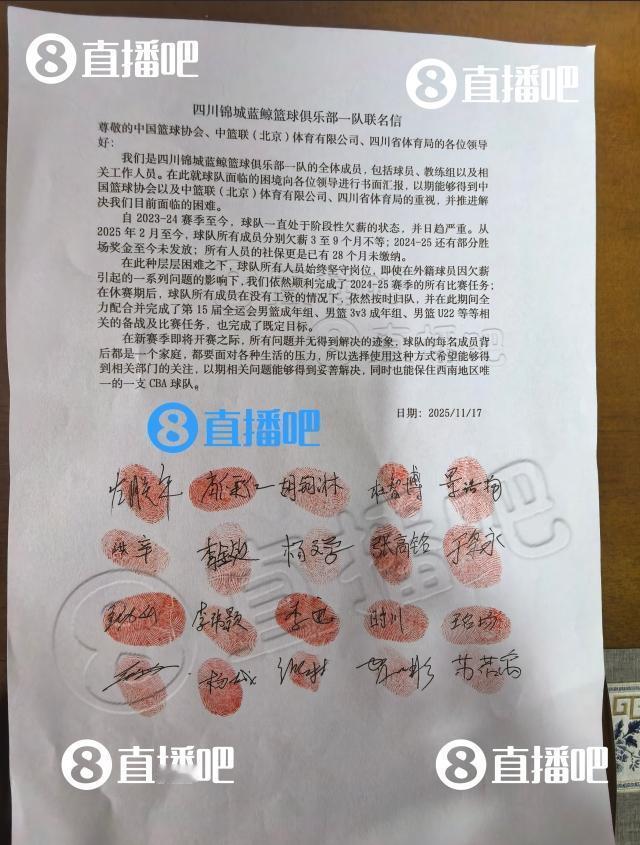 8直播吧
8直播吧
四川锦城蓝鲸篮球俱乐部一队联名信
尊敬的中国篮球协会、中篮联（北京）体育有限公司、四川省体育局的各位领导
好：
我们是四川锦城蓝鲸篮球俱乐部一队的全体成员，包括球员、教练组以及相
关工作人员。在此就球队面临的困境向各位领导进行书面汇报，以期能够得到中
国篮球协会以及中篮联（北京）体育有限公司、四川省体育局的重视，并推进解
决我们目前面临的困难。
自 2023-24 赛季至今，球队一直处于阶段性欠薪的状态，并日趋严重。从
2025 年 2 月至今，球队所有成员分别欠薪 3 至 9 个月不等；2024-25 还有部分胜
场奖金至今未发放；所有人员的社保更是已有 28 个月未缴纳。
在此种层层困难之下，球队所有人员始终坚守岗位，即使在外籍球员因欠薪
引起的一系列问题的影响下，我们依然顺利完成了 2024-25 赛季的所有比赛任务；
在休赛期后，球队所有成员在没有工资的情况下，依然按时归队，并在此期间全
力配合并完成了第 15 届全运会男篮成年组、男篮 3v3 成年组、男篮 U22 等等相
关的备战及比赛任务，也完成了既定目标。
在新赛季即将开赛之际，所有问题并无得到解决的迹象，球队的每名成员背
后都是一个家庭，都要面对各种生活的压力，所以选择使用这种方式希望能够得
到相关部门的关注，以期相关问题能够得到妥善解决，同时也能保住西南地区唯
一的一支 CBA 球队。
日期：2025/11/17
8直播吧
杜智博 景浩扬
杨文学 张高铭
8直播吧
李祎颢 李迅 时川
8直播吧
8直播吧